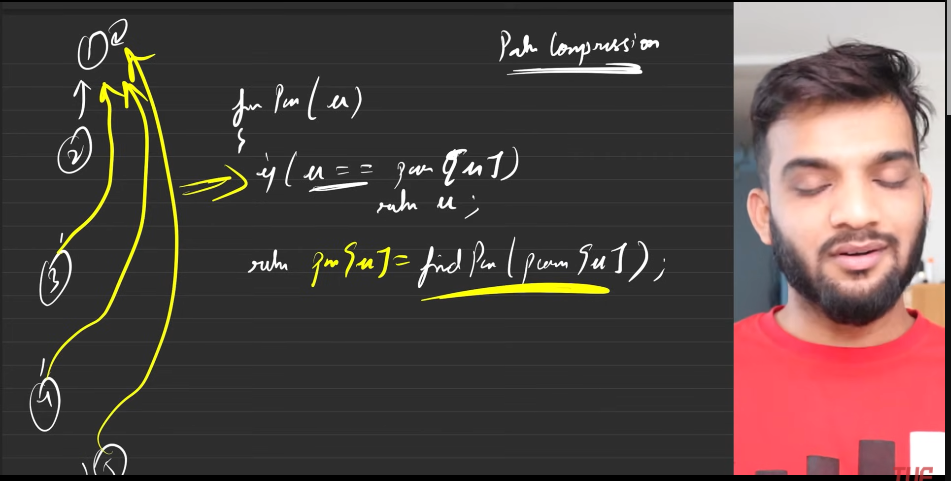 Path Compression
1
2
3
4
5
findPar(u)
{
if(u == par[u])
return u;
return par[u] = findPar(parent[u]);